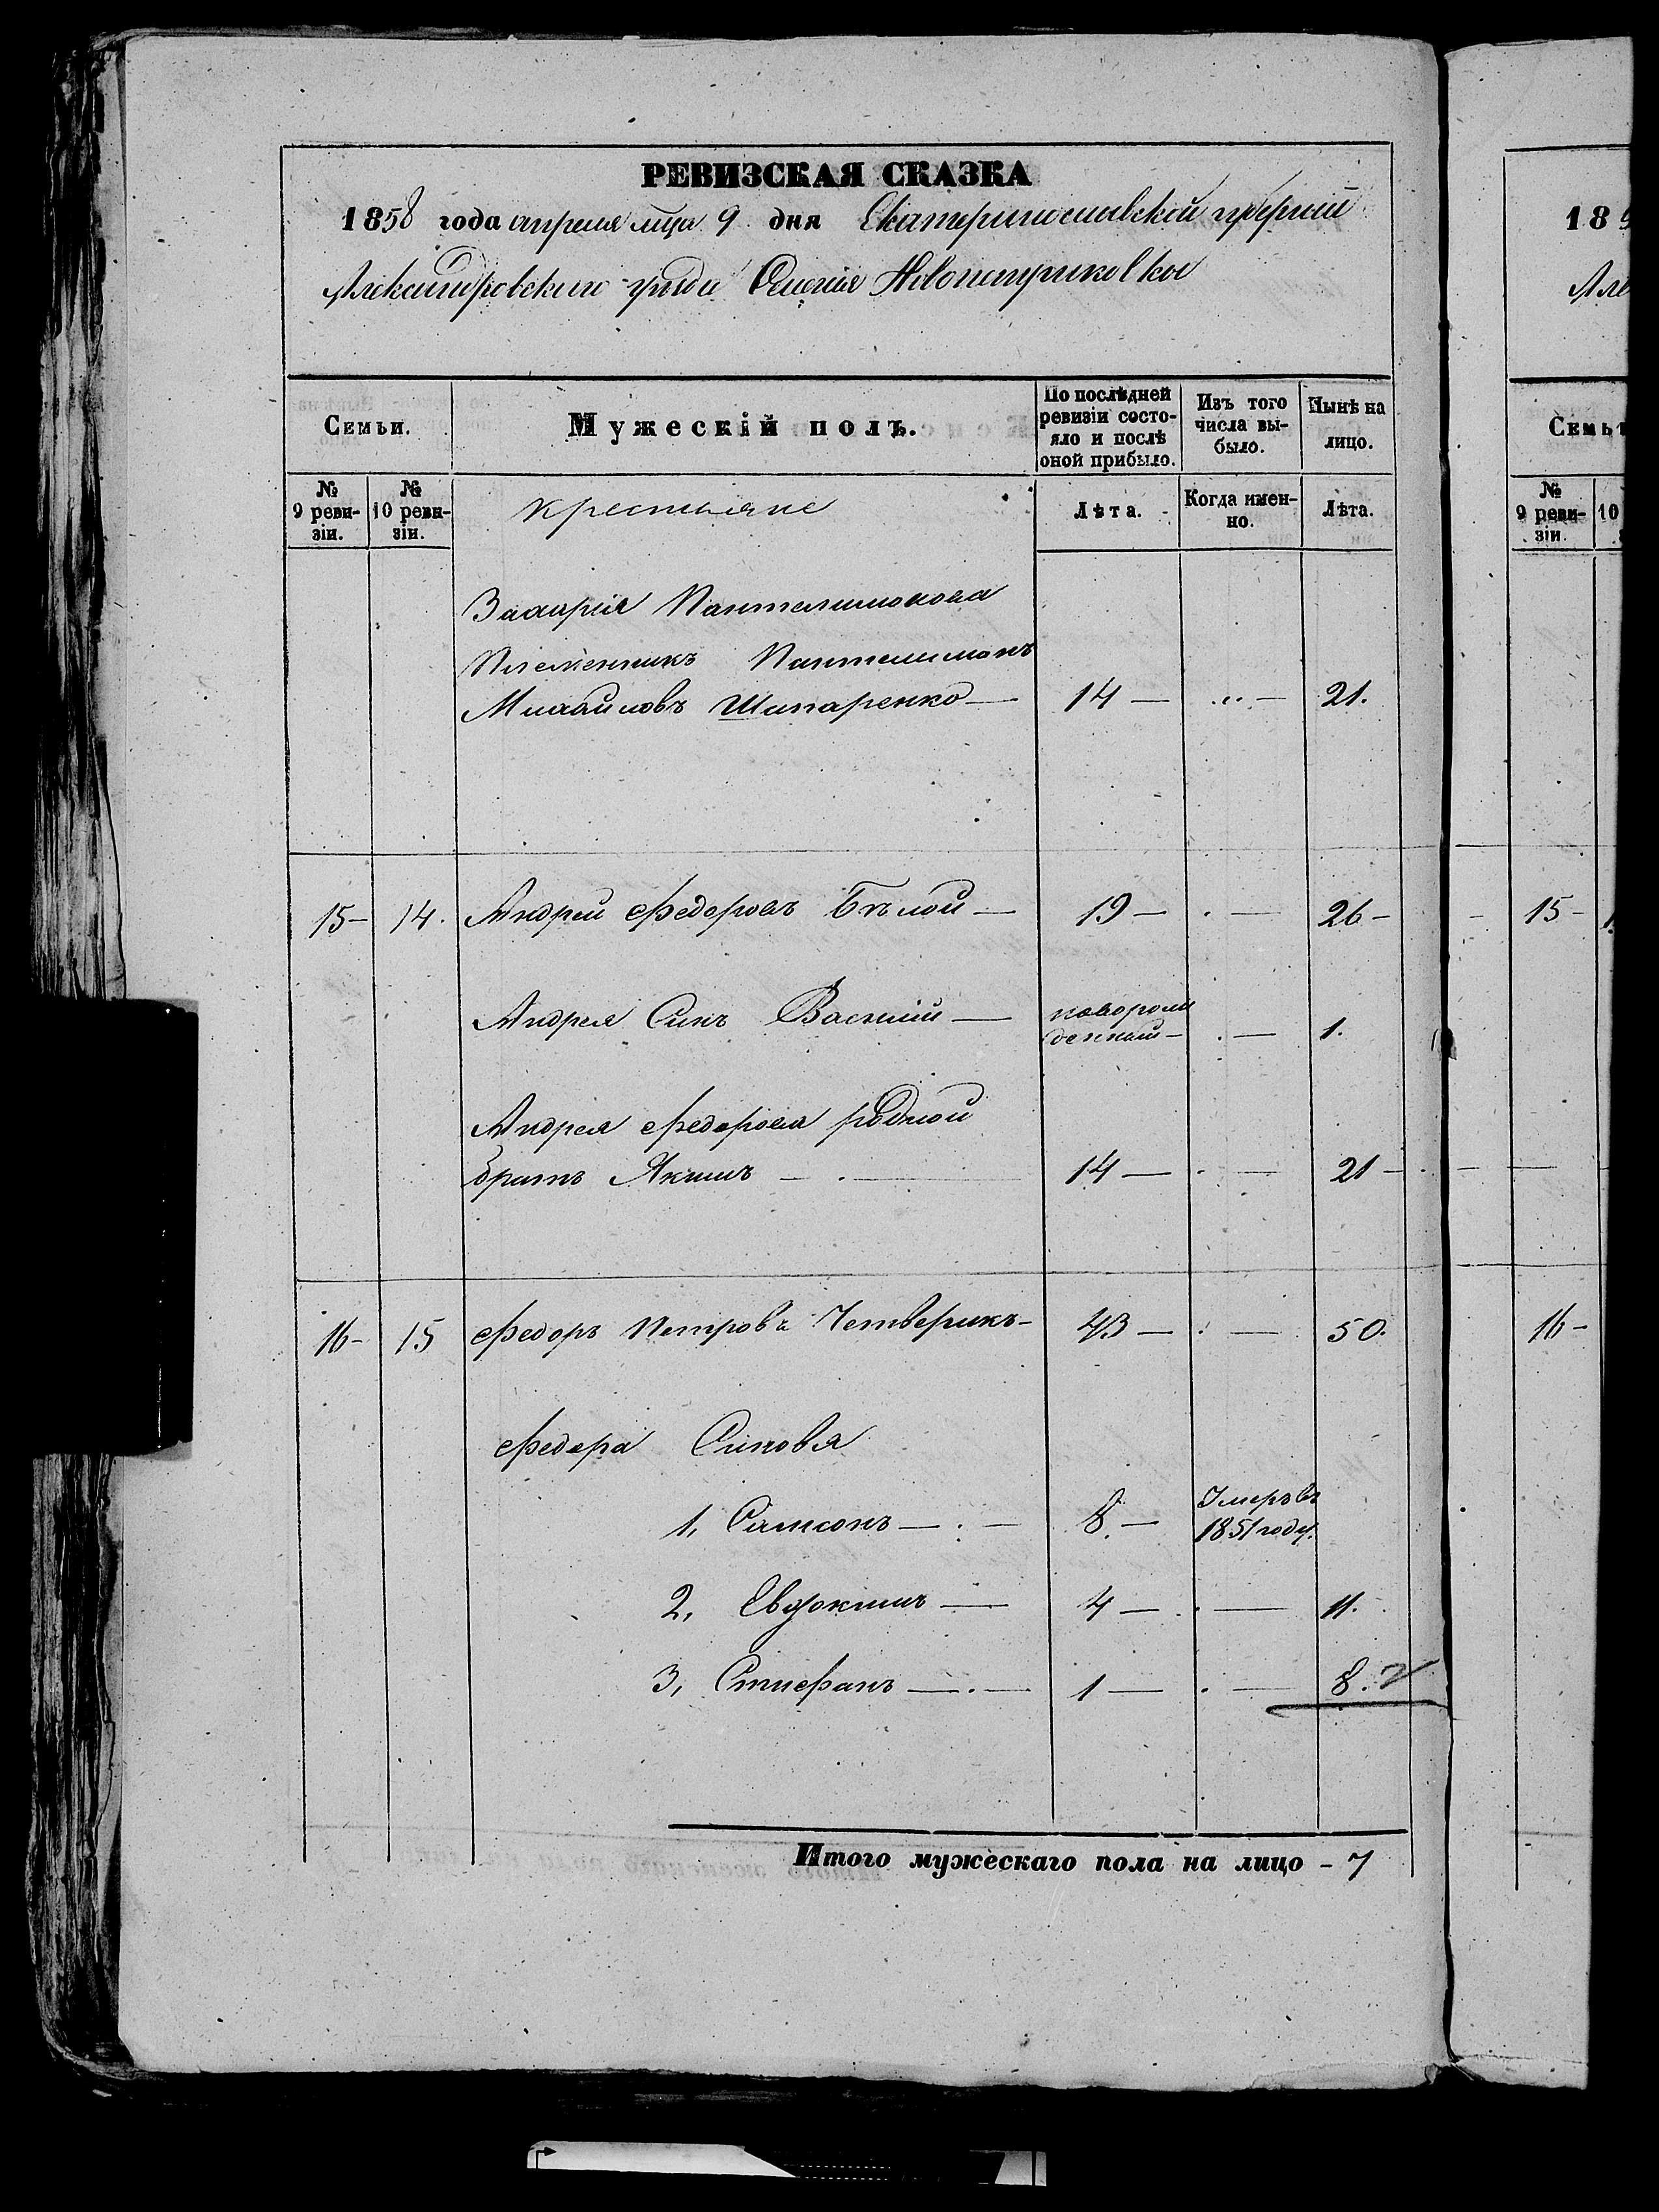 РЕВИЗСКАЯ СКАЗКА
1858 года апреля мца 9 дня Екатеринославской губерніи
Александровскаго уезда Селенія
Семьи.
Мужескій полъ.
По послѣдней ревизіи состо-
яло и послѣ
оной прибыло.
Изъ того
числа вы-
было.
Нынѣ на
лицо.
№
9 реви-
зіи.
№
10 реви-
зіи.
крестьяне
Лѣта.
Когда имен-
но.
Лѣта.
Захарія Пантелимонова
Племенникъ Пантелимонъ
Михайловъ Шипаренко — 14 — — 21.
15 — 14. Андрей Федоровъ Бѣлой — 19 — . — 26 —
Андрея Синъ Василій — новорож
денный — . — 1.
Андрея Федорова родной
братъ Якимъ — . — 14 — . — 21 —
16 — 15 Федоръ Петровъ Четверикъ — 43 — . — 50.
Федора Синовя
1, Самсонъ — . — 8. — Умеръ въ
1851 году.
2, Евдокимъ — 4 — . — 11.
3, Стиефанъ — . — 1 — . — 8.
Итого мужескаго пола на лицо — 7
18
Але
Семь
№
9 реви-
зіи.
10
15 —
16 —